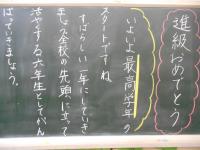 進級おめでとう
いよいよ最高学年の
スタートですね。
すばらしい一年にしていき
ましょう。全校の先頭に立って
活やくする六年生としてがん
ばっていきましょう。